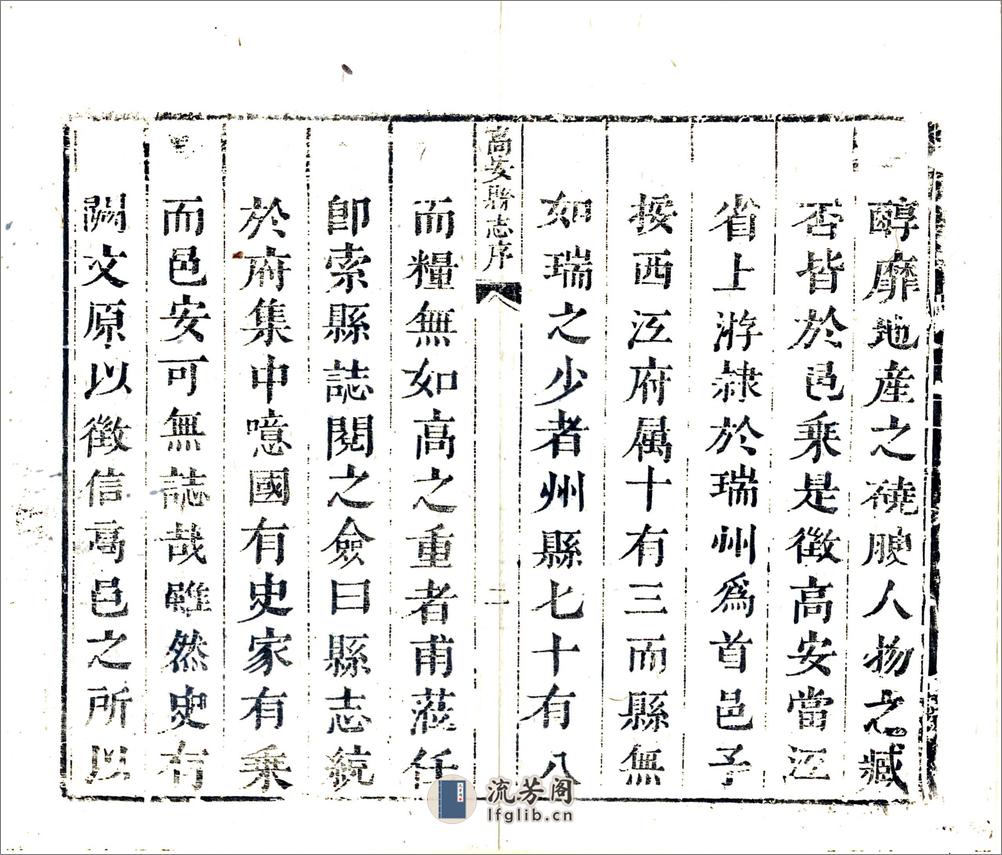 醇靡地產之磽腴人物之臧
否皆於邑乘是徵高安當江
省上游隷於瑞州爲首邑予
按西江府属十有三而縣無
如瑞之少者州縣七十有八
高安縣志序
二
而糧無如高之重者甫蒞任
即索縣誌閱之僉曰縣志統
於府集中噫國有史家有乘
而邑安可無誌哉雖然史有
闕文原以徵信高邑之所以
流芳阁
lfglib.cn